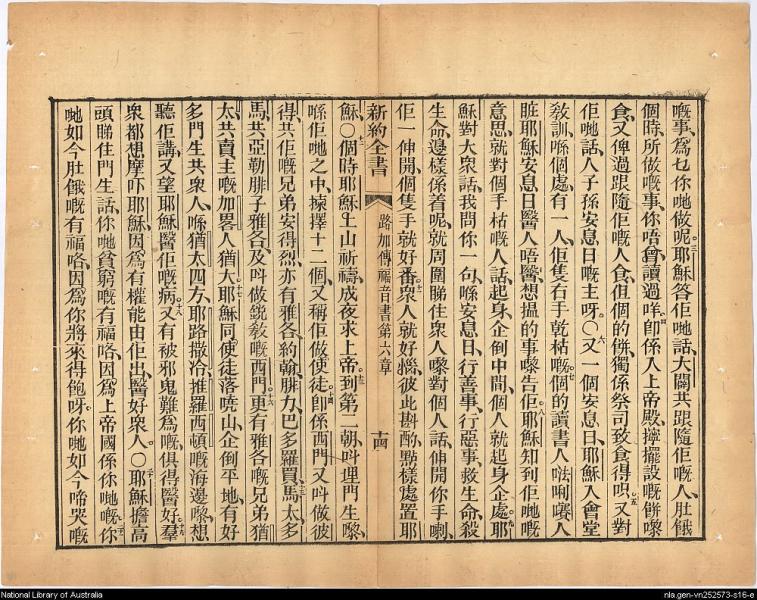 嘅事、爲乜你哋做呢、耶穌答佢哋話、大闢共跟隨佢嘅人、肚餓
個時、所做嘅事、你唔曾讀過咩、卽係入上帝殿、擰擺設嘅餅嚟
食、又俾過跟隨佢嘅人食、但個的餅、獨係祭司致食得呮、又對
佢哋話、人子係安息日嘅主呀。○又一個安息日、耶穌入會堂
敎訓、喺個處有一人、佢隻右手乾枯嘅、個的讀書人、唎人
耶穌安息日醫人唔醫、想揾的事嚟告佢、耶穌知到佢哋嘅
意思、就對個手枯嘅人話、起身、企倒中間、個人就起身企處、耶
穌對大衆話、我問你一句、喺安息日、行善事、行惡事、救生命、殺
生命、邊樣係着呢、就周圍睇住衆人、嚟對個人話、伸開你手喇、
佢一伸開、個隻手就好番、衆人就好惱、彼此斟酌、點樣處置耶
新約全書 路加傳福音書第六章 十四
穌○個時耶穌上山祈禱、成夜求上帝、到第二朝、呌埋門生嚟、
喺佢哋之中、揀擇十二個、又稱佢做使徒、卽係西門、又呌做彼
得、共佢嘅兄弟安得烈、亦有雅各、約翰、腓力、巴多羅買、馬太、多
馬、共亞勒腓子雅各、及呌做銳敎嘅西門、更有雅各嘅兄弟猶
太、共賣主嘅加畧人猶大、耶穌同使徒落嘵山、企倒平地、有好
多門生共衆人、喺猶太四方、耶路撒冷、推羅西頓嘅海邊嚟、想
聽佢講、又望耶穌醫佢嘅病、又有被邪鬼難爲嘅、俱得醫好、羣
衆都想摩吓耶穌、因爲有權能由佢出、醫好衆人。○耶穌擔高
頭、睇住門生話、你哋貧窮嘅有福咯、因爲上帝國係你哋嘅、你
哋如今肚餓嘅有福咯、因爲你將來得飽呀、你哋如今啼哭嘅
National Library of Australia
nla.gen-vn252573-s16-e